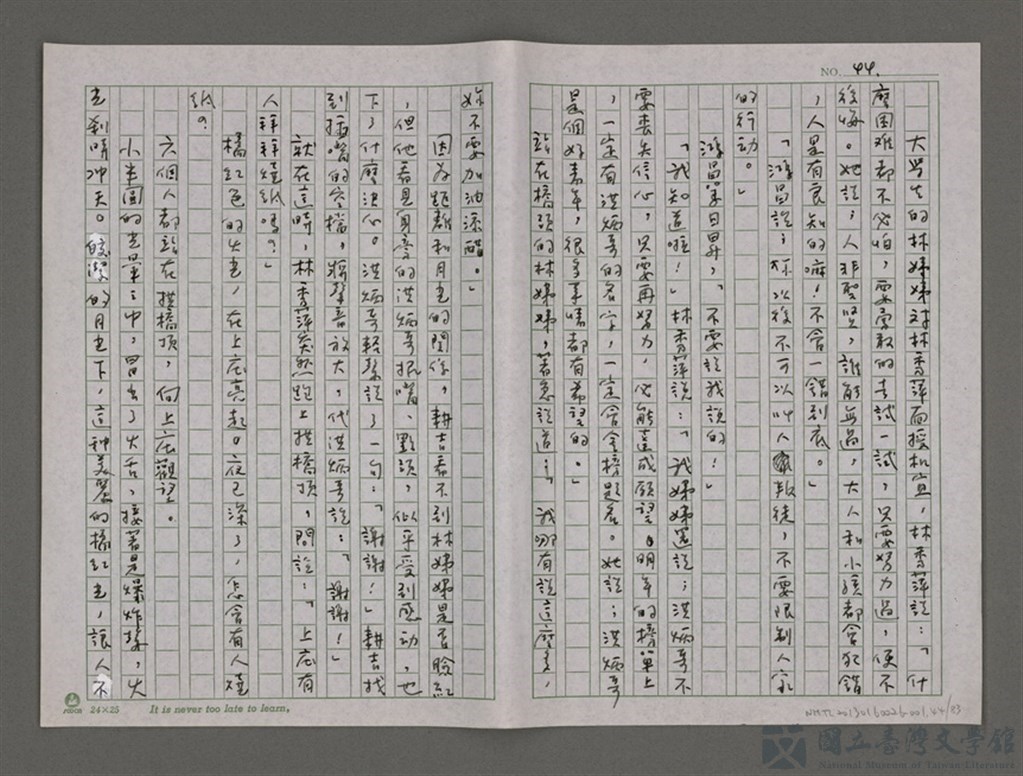 NO. 44.
大學生的林娣娣对林香萍面授机宜，林香萍說：「什
麼困难都不必怕，要勇敢的去試一試，只要努力過，便不
後悔。她說；人非聖賢，誰能無過，大人和小孩都会犯錯
，人是有良知的嘛！不会一錯到底。」
「鴻昌說；你以後不可以叫人叛徒，不要限制人家
的行動。」
鴻昌笨日昇，「不要說我說的！」
「我知道啦！」林香萍說：「我娣娣還說；洪炳哥不
要丧失信心，只要再努力，必能達成願望。明年的榜單上
，一定有洪炳哥的名字，一定会金榜題名。她說；洪炳哥
是個好青年，很多事情都有希望的。」
站在橋頭的林娣娣，著急說道：「我哪有說這麼多，
妳不要加油添醋。」
因為距離和月光的関係，耕吉看不到林娣娣是否臉紅
，但他看見身旁的洪炳哥抿嘴、點頭，似乎受到感动，也
下了什麼決心。洪炳哥輕聲說了一句：「謝謝！」耕吉找
到插嘴的空檔，將聲音放大，代洪炳哥說：「謝謝！」
就在這時，林香萍突然跑上拱橋頂，問說：「上庄有
人拜拜燒紙嗎？」
橘紅色的火光，在上庄亮起。夜已深了，怎会有人燒
紙？
六個人都站在拱橋頂，向上庄觀望。
小半圓的光暈之中，冒出了火舌，接著是爆炸聲，火
光剎時冲天。皎潔的月光下，這种美麗的橘紅光，讓人不
24×25
It is never too late to learn,
NMTL20130160026-001.44/83
國立臺灣文學館
National Museum of Taiwan Literature